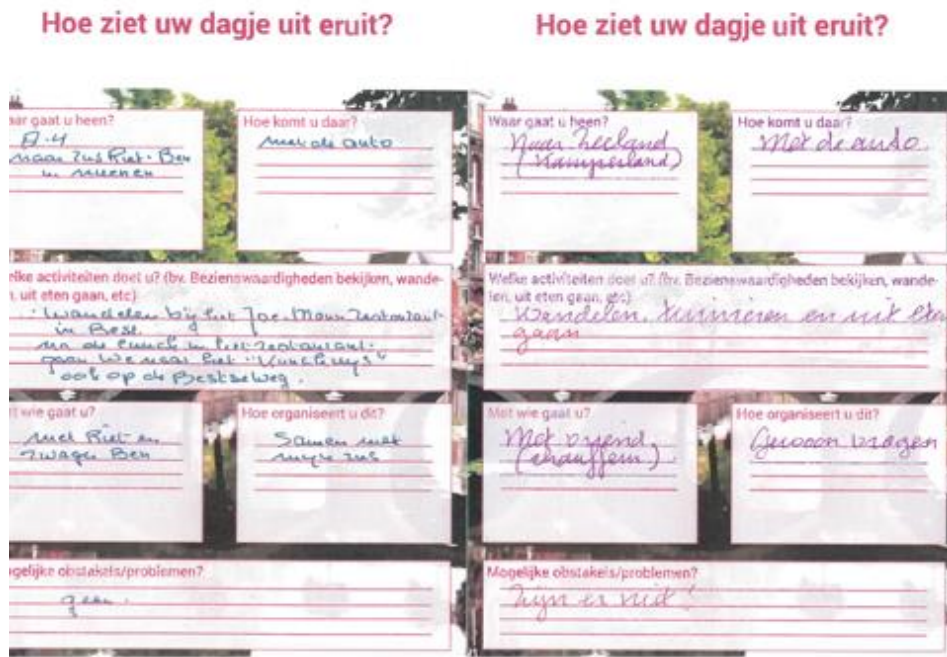 Hoe ziet uw dagje uit eruit?
aar gaat u heen?
naar zus Riet - Ben
in
Hoe komt u daar?
met de auto
elke activiteiten doet u? (bv. Bezienswaardigheden bekijken, wande-
n, uit eten gaan, etc)
wandelen bij het Joe Mann restaurant
in Best.
na de lunch in het restaurant.
gaan we naar het "
ook op de Bestseweg.
t wie gaat u?
met Riet en
zwager Ben
Hoe organiseert u dit?
Samen met
mijn zus
ogelijke obstakels/problemen?
geen.
Hoe ziet uw dagje uit eruit?
Waar gaat u heen?
Naar Zeeland
(Kamperland)
Hoe komt u daar?
Met de auto.
Welke activiteiten doet u? (bv. Bezienswaardigheden bekijken, wande-
len, uit eten gaan, etc)
Wandelen, tuinieren en uit eten
gaan
Met wie gaat u?
Met vriend
(chauffeur).
Hoe organiseert u dit?
Gewoon vragen
Mogelijke obstakels/problemen?
Zijn er niet!